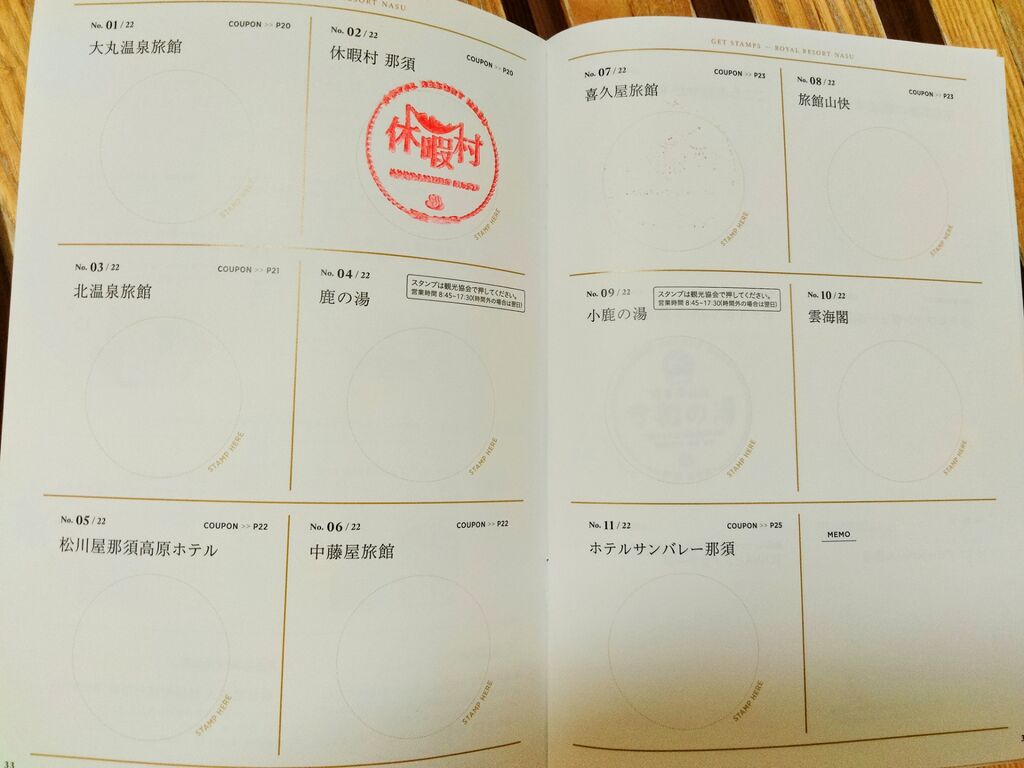 RESORT NASU
No. 01 / 22
COUPON >> P20
大丸温泉旅館
STAMP HERE
No. 02 / 22
COUPON >> P20
休暇村 那須
ROYAL RESORT NASU
休暇村
STAMP HERE
No. 03 / 22
COUPON >> P21
北温泉旅館
STAMP HERE
No. 04 / 22
鹿の湯
スタンプは観光協会で押してください。
営業時間 8:45~17:30(時間外の場合は翌日)
STAMP HERE
No. 05 / 22
COUPON >> P22
松川屋那須高原ホテル
STAMP HERE
No. 06 / 22
COUPON >> P22
中藤屋旅館
STAMP HERE
33
GET STAMPS — ROYAL RESORT NASU
No. 07 / 22
COUPON >> P23
喜久屋旅館
STAMP HERE
No. 08 / 22
COUPON >> P23
旅館山快
STAMP HERE
No. 09 / 22
小鹿の湯
スタンプは観光協会で押してください。
営業時間 8:45~17:30(時間外の場合は翌日)
STAMP HERE
No. 10 / 22
雲海閣
STAMP HERE
No. 11 / 22
COUPON >> P25
ホテルサンバレー那須
STAMP HERE
MEMO